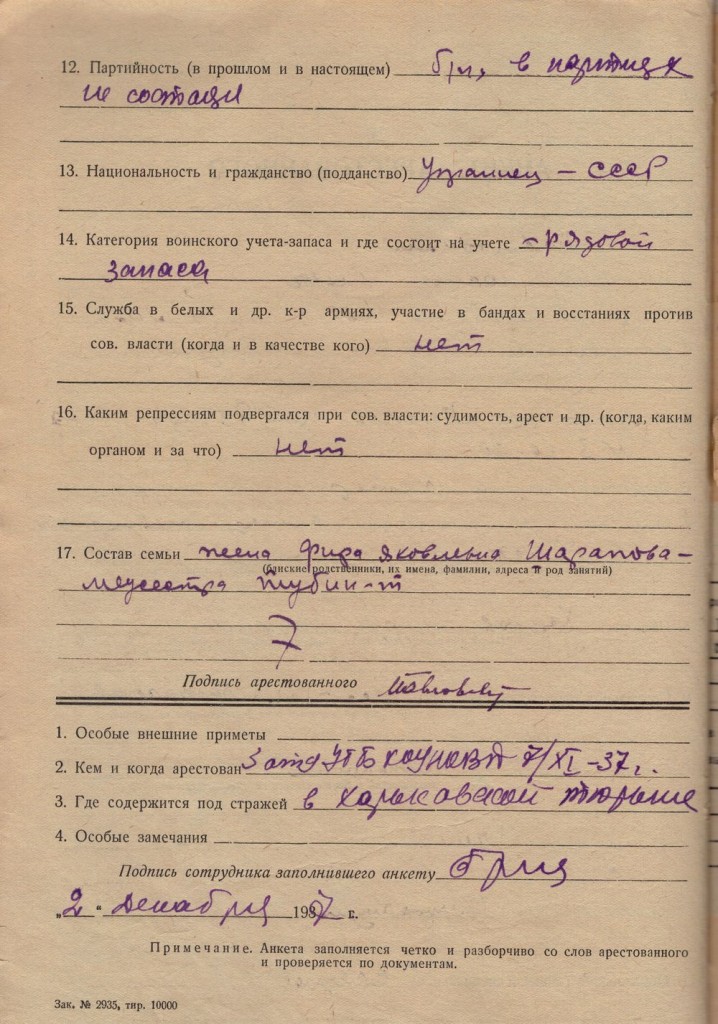 12. Партийность (в прошлом и в настоящем) б/п, в партиях
не состоял
13. Национальность и гражданство (подданство) Украинец – СССР
14. Категория воинского учета-запаса и где состоит на учете – рядовой
запаса
15. Служба в белых и др. к-р армиях, участие в бандах и восстаниях против
сов. власти (когда и в качестве кого) нет
16. Каким репрессиям подвергался при сов. власти: судимость, арест и др. (когда, каким
органом и за что) нет
17. Состав семьи жена Фира Яковлевна Шарапова –
(близкие родственники, их имена, фамилии, адреса и род занятий)
медсестра тубин-т
Подпись арестованного
1. Особые внешние приметы
2. Кем и когда арестован 3 отд УГБ ХОУНКВД 7/XI–37г.
3. Где содержится под стражей в Харьковской тюрьме
4. Особые замечания
Подпись сотрудника заполнившего анкету
„2“ декабря 1937 г.
Примечание. Анкета заполняется четко и разборчиво со слов арестованного
и проверяется по документам.
Зак. № 2935, тир. 10000